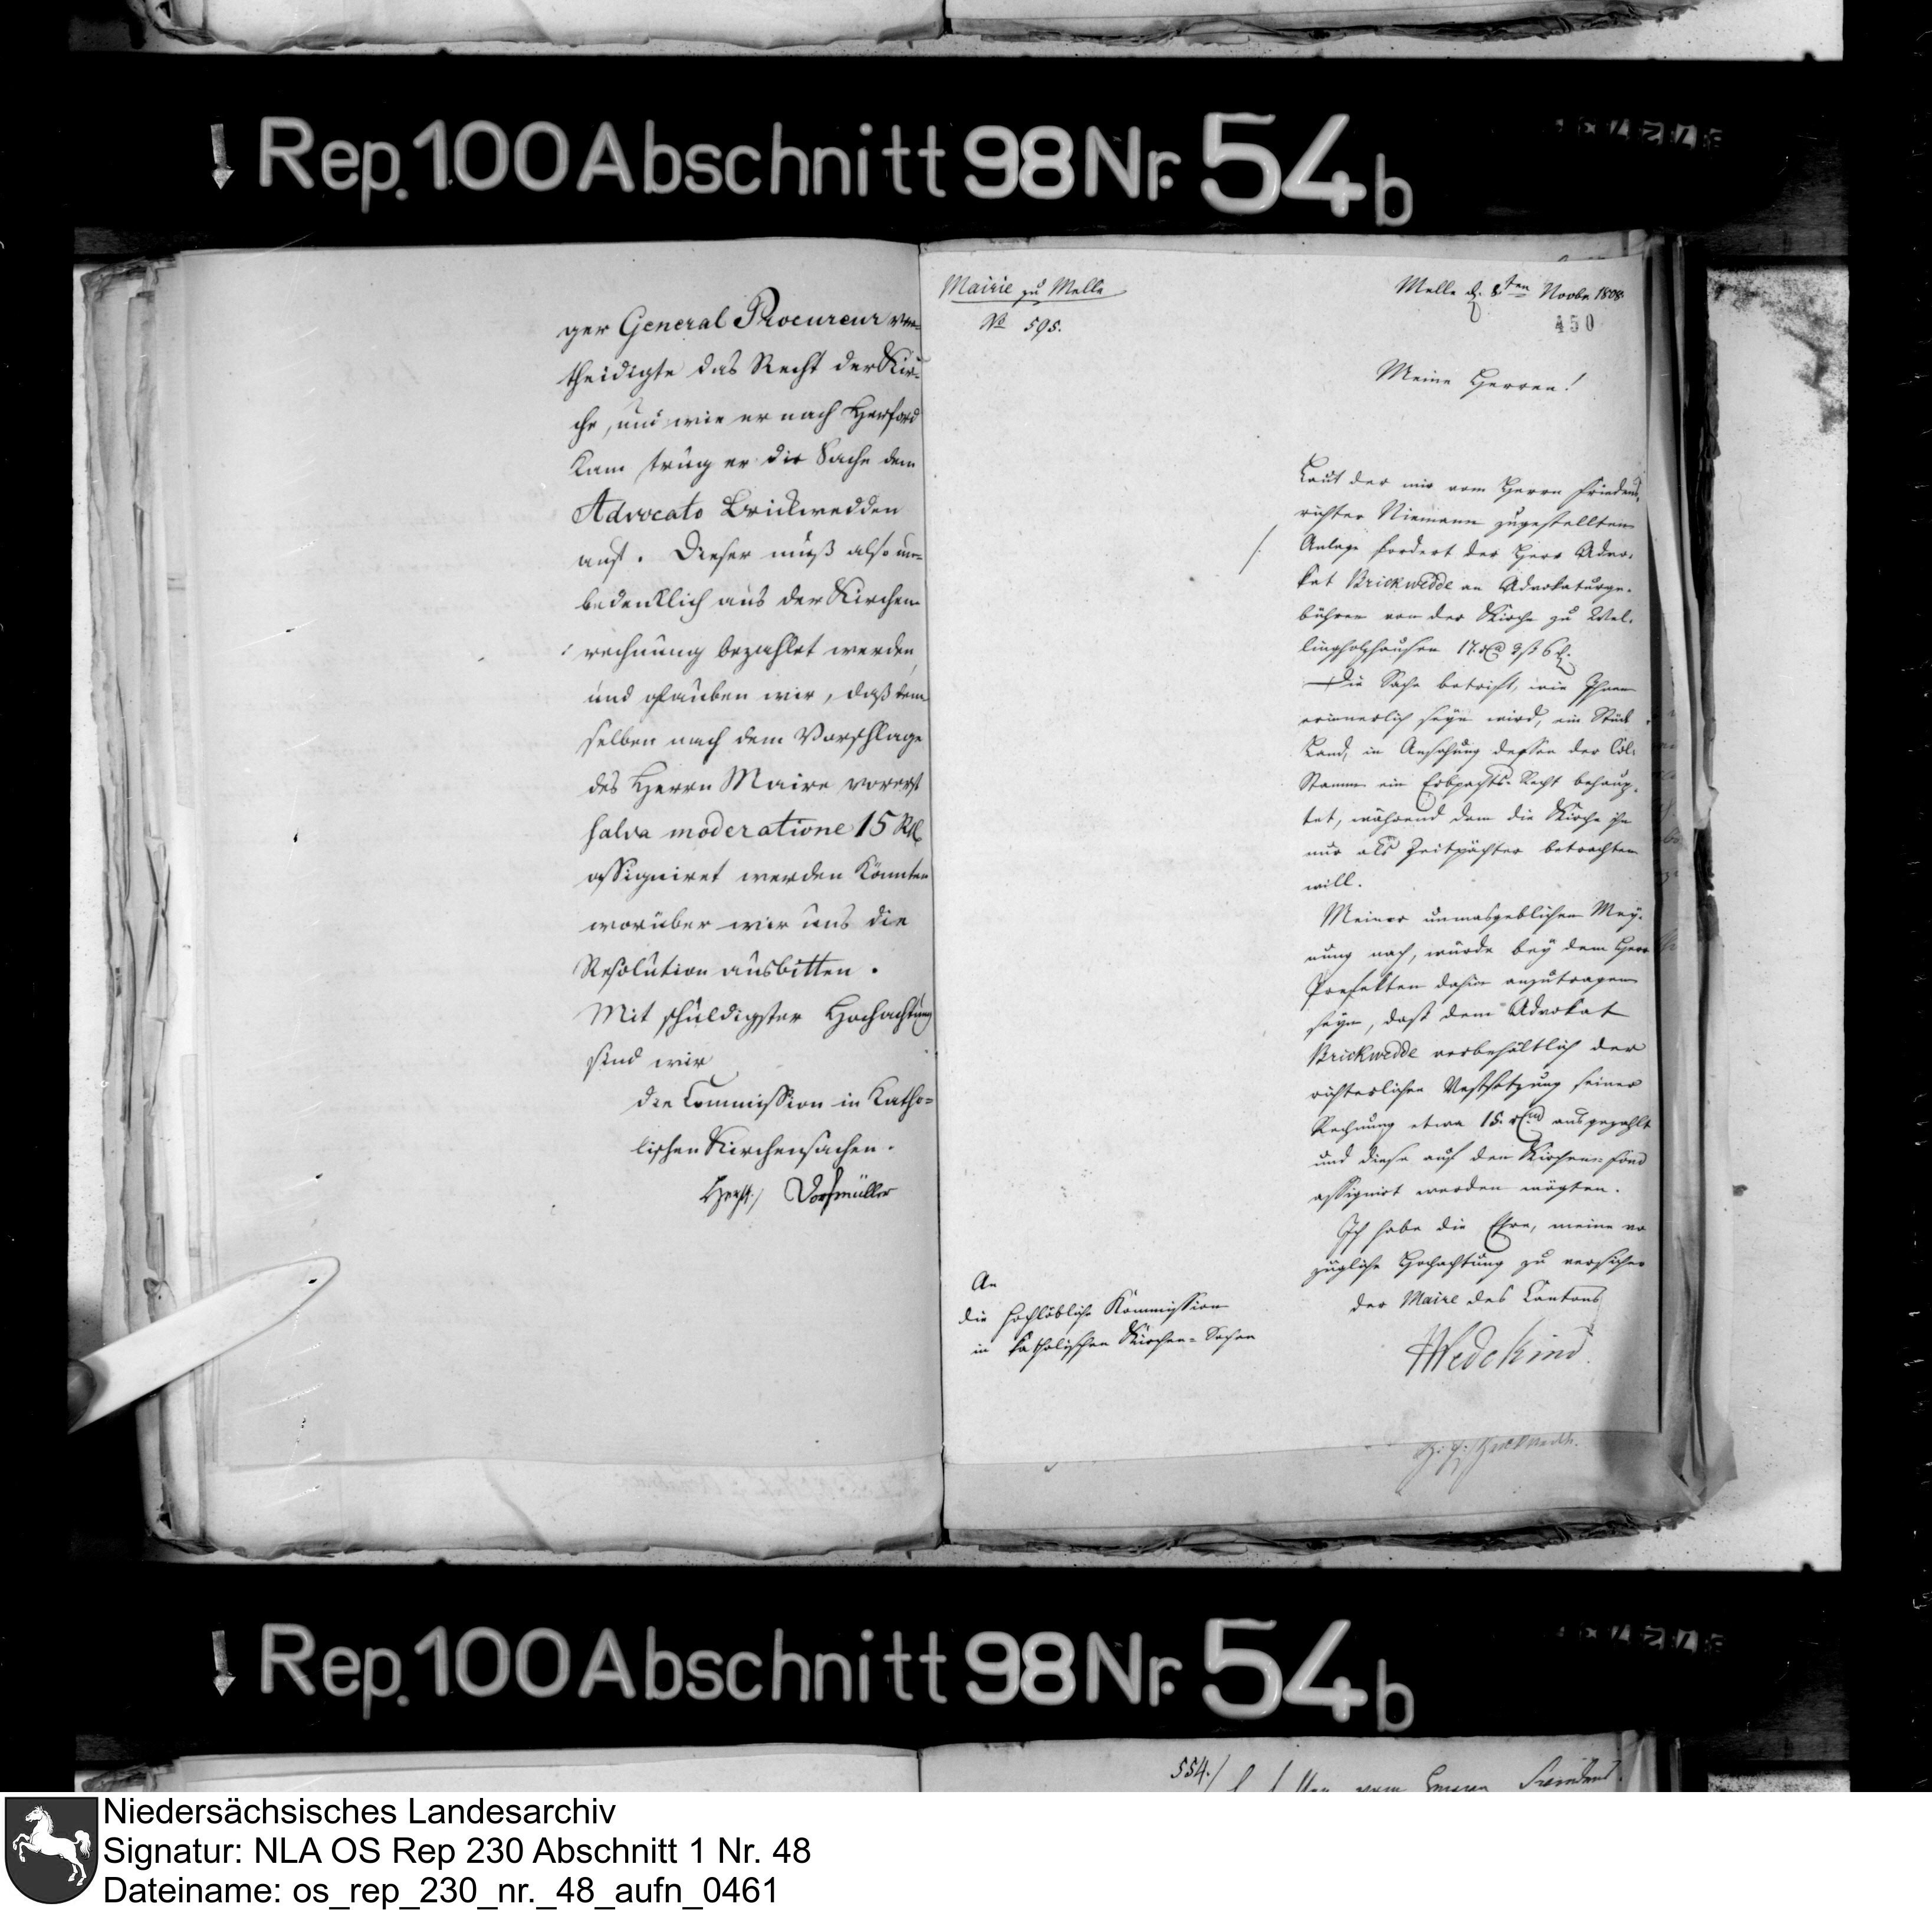 Rep. 100 Abschnitt 98 Nr. 54b
ger General Procureur ver-
theidigte das Recht der Kir-
che, und wie er nach Herford
kam trug er die Sache dem
Advocato Brickwedden
auf. Dieser muß also un-
bedenklich aus der Kirchen
rechnung bezahlet werden,
und glauben wir, daß dem
selben nach dem Vorschlage
des Herrn Maire vorerst
salva moderatione 15 Rtl
assigniret werden könnten
worüber wir uns die
Resolution ausbitten.
Mit schuldigster Hochachtung
sind wir
die Commission in Katho-
lischen Kirchensachen.
Vorsmüller
Mairie zu Melle
No 595.
Melle d. 8ten Novbr 1808.
450
Meine Herren!
Laut der mir vom Herrn Friedens
richter Niemann zugestellten
Anlage fordert der Herr Advo-
kat Brickwedde an Advokaturge-
bühren von der Kirche zu Wel-
lingholzhausen 17 2 ß 6
Die Sache betrift, wie Ihnen
erinnerlich seyn wird, ein Stück
Land, in Ansehung dessen der Col:
Stamm ein Erbpachts-Recht behaup-
tet, während dem die Kirche ihn
nur als Zeitpächter betrachten
will.
Meiner unmasgeblichen Mey-
nung nach, würde bey dem Herr
Prefekten dahin anzutragen
seyn, daß dem Advokat
Brickwedde vorbehältlich der
richterlichen Vestsetzung seiner
Rechnung etwa 15. ausgezahlt
und diese auf den Kirchen-fond
assignirt werden mögten.
Ich habe die Ehre, meine vor
zügliche Hochachtung zu versichern
der Maire des Cantons
Wedekind.
An
die hochlöbliche Kommission
in katholischen Kirchen-Sachen
Rep. 100 Abschnitt 98 Nr. 54b
554./
Niedersächsisches Landesarchiv
Signatur: NLA OS Rep 230 Abschnitt 1 Nr. 48
Dateiname: os_rep_230_nr._48_aufn_0461